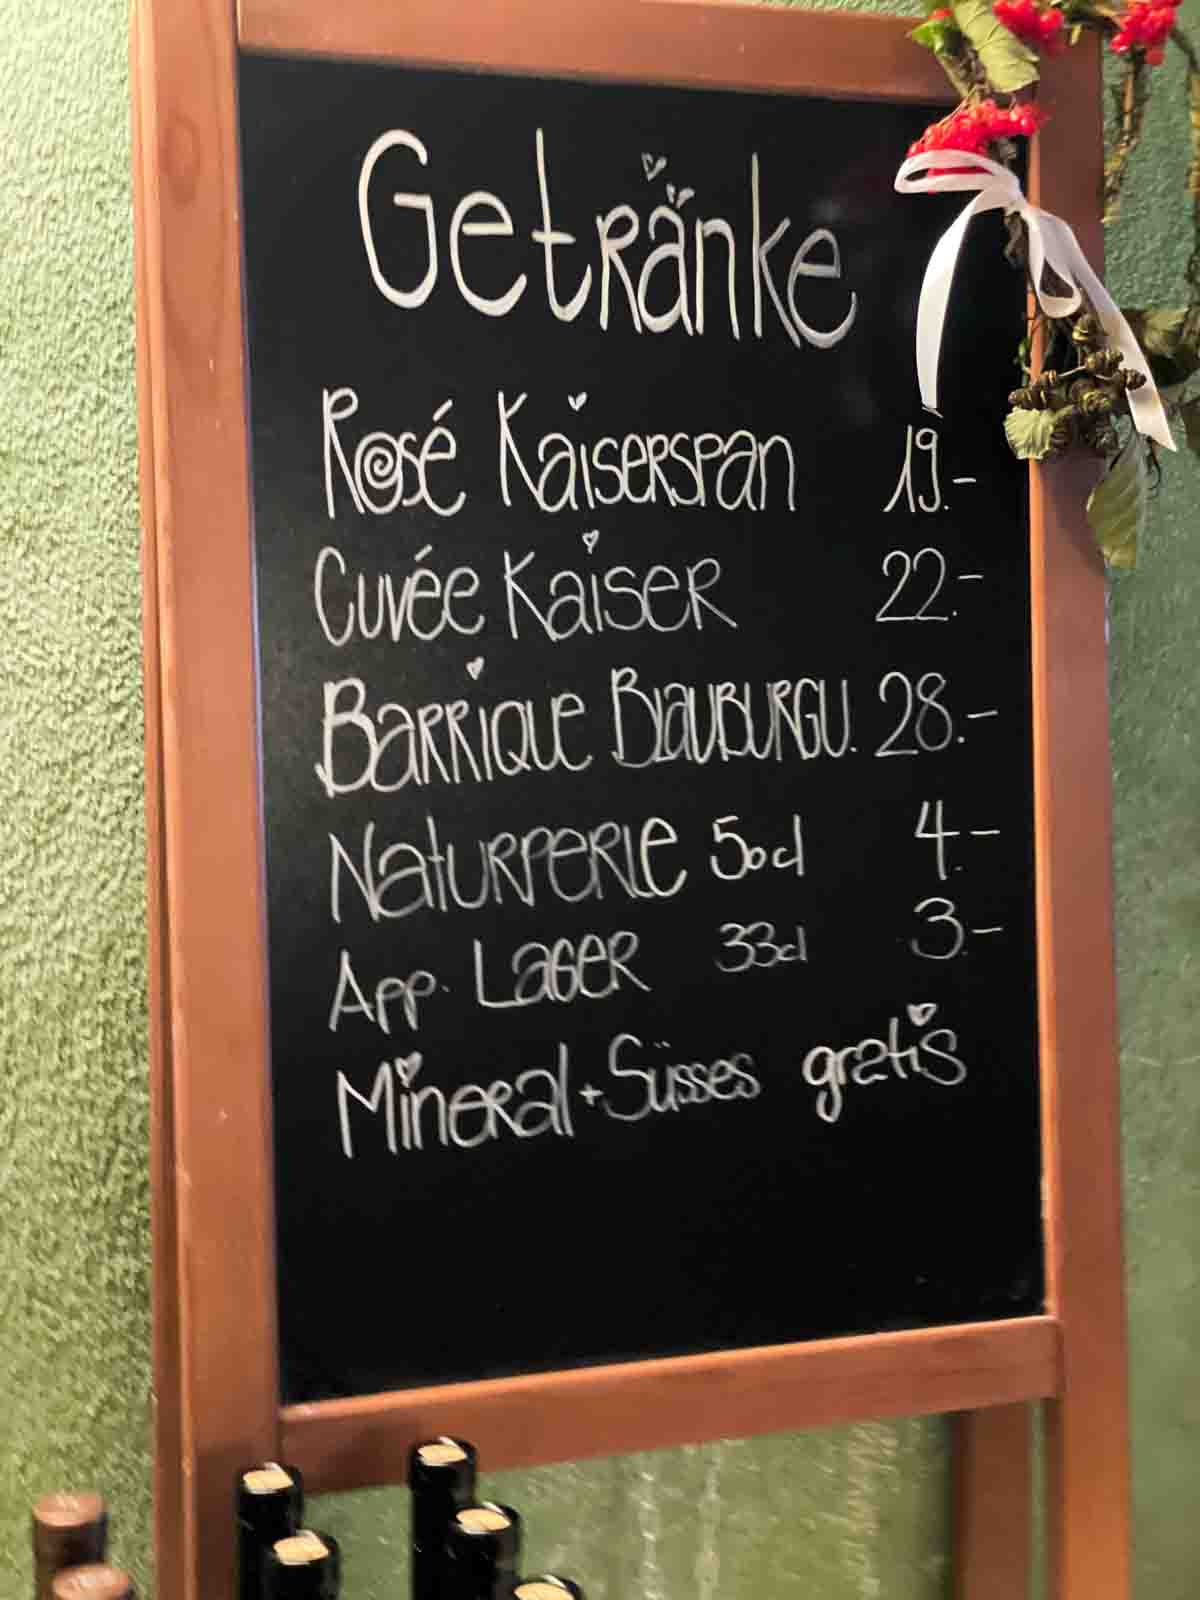 Getränke
Rosé Kaiserspan 19.-
Cuvée Kaiser 22.-
Barrique Blauburgu. 28.-
Naturperle 50cl 4.-
App. Lager 33cl 3.-
Mineral + Süsses gratis